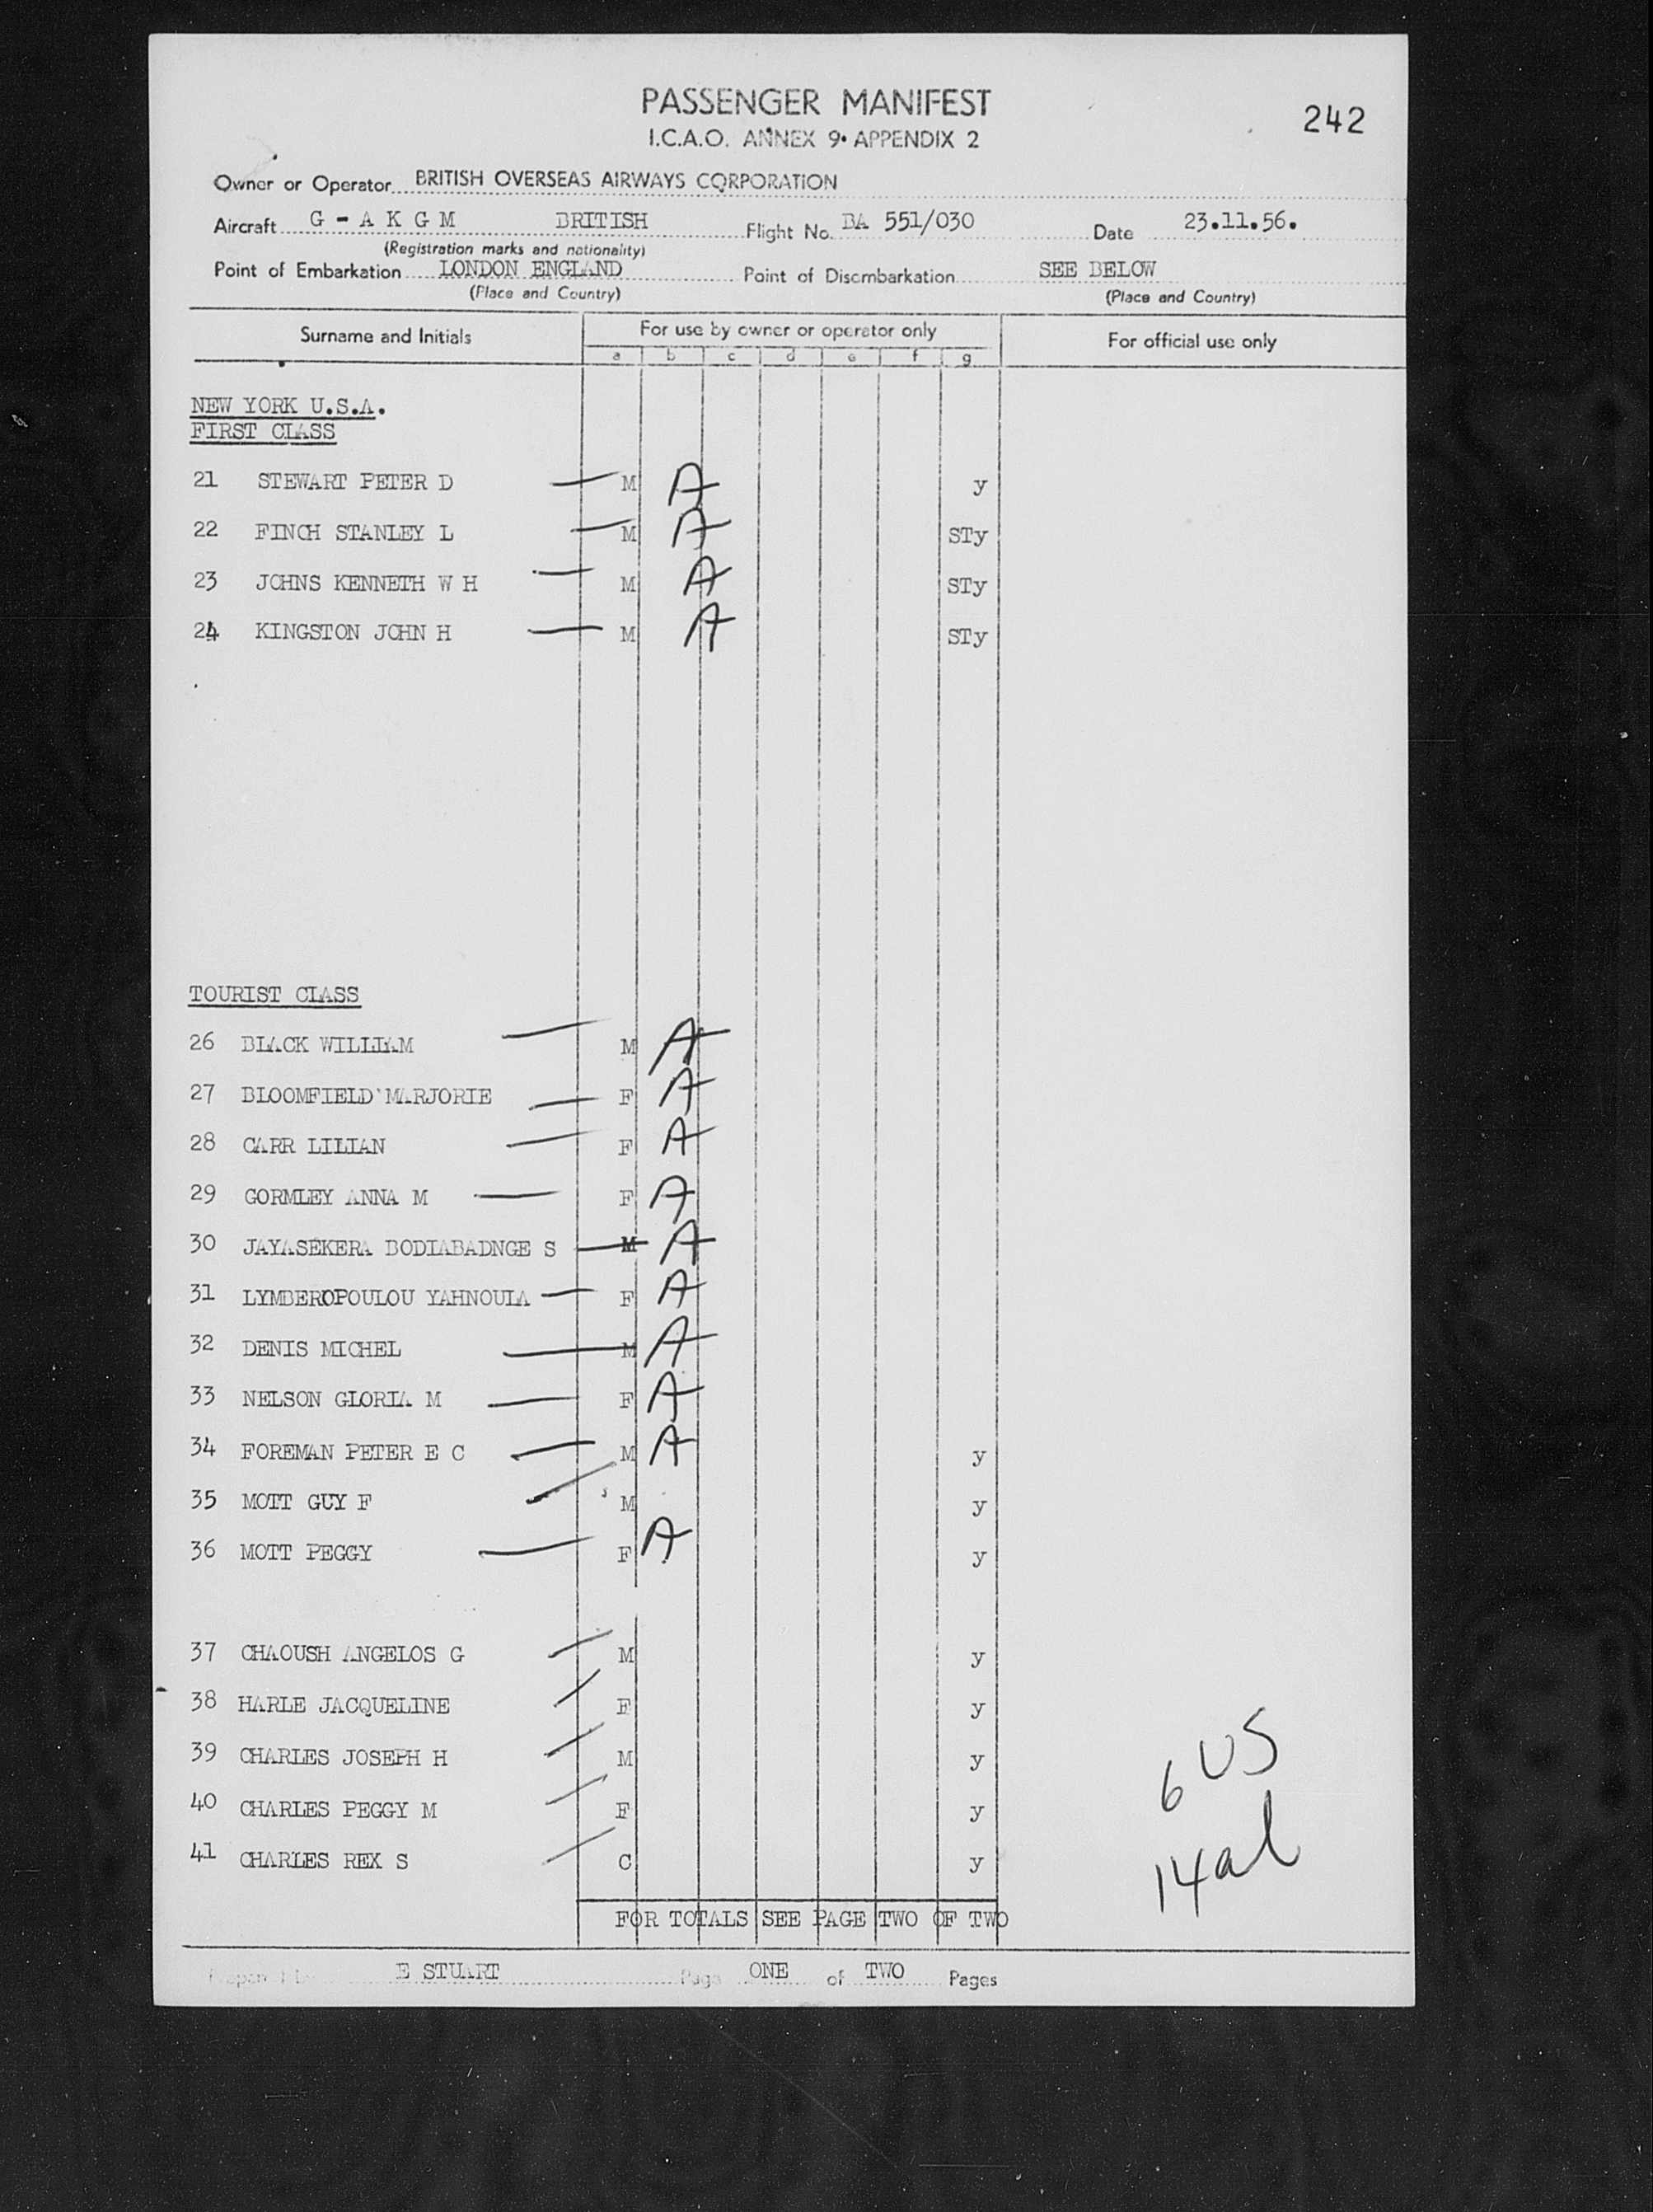 PASSENGER MANIFEST
242
I.C.A.O. ANNEX 9• APPENDIX 2
Owner or Operator BRITISH OVERSEAS AIRWAYS CORPORATION
Aircraft G - A K G M BRITISH Flight No. BA 551/030 Date 23.11.56.
(Registration marks and nationality)
Point of Embarkation LONDON ENGLAND Point of Disembarkation SEE BELOW
(Place and Country) (Place and Country)
Surname and Initials For use by owner or operator only For official use only
a b c d e f g
NEW YORK U.S.A.
FIRST CLASS
21 STEWART PETER D M A y
22 FINCH STANLEY L M A STy
23 JOHNS KENNETH W H M A STy
24 KINGSTON JOHN H M A STy
TOURIST CLASS
26 BLACK WILLIAM M A
27 BLOOMFIELD MARJORIE F A
28 CARR LILIAN F A
29 GORMLEY ANNA M F A
30 JAYASEKERA BODIABADNGE S M A
31 LYMBEROPOULOU YAHNOULA F A
32 DENIS MICHEL M A
33 NELSON GLORIA M F A
34 FOREMAN PETER E C M A y
35 MOTT GUY F M y
36 MOTT PEGGY F A y
37 CHAOUSH ANGELOS G M y
38 HARLE JACQUELINE F y
39 CHARLES JOSEPH H M y
40 CHARLES PEGGY M F y
41 CHARLES REX S C y
6 US
14 al
FOR TOTALS SEE PAGE TWO OF TWO
Prepared by E STUART Page ONE of TWO Pages